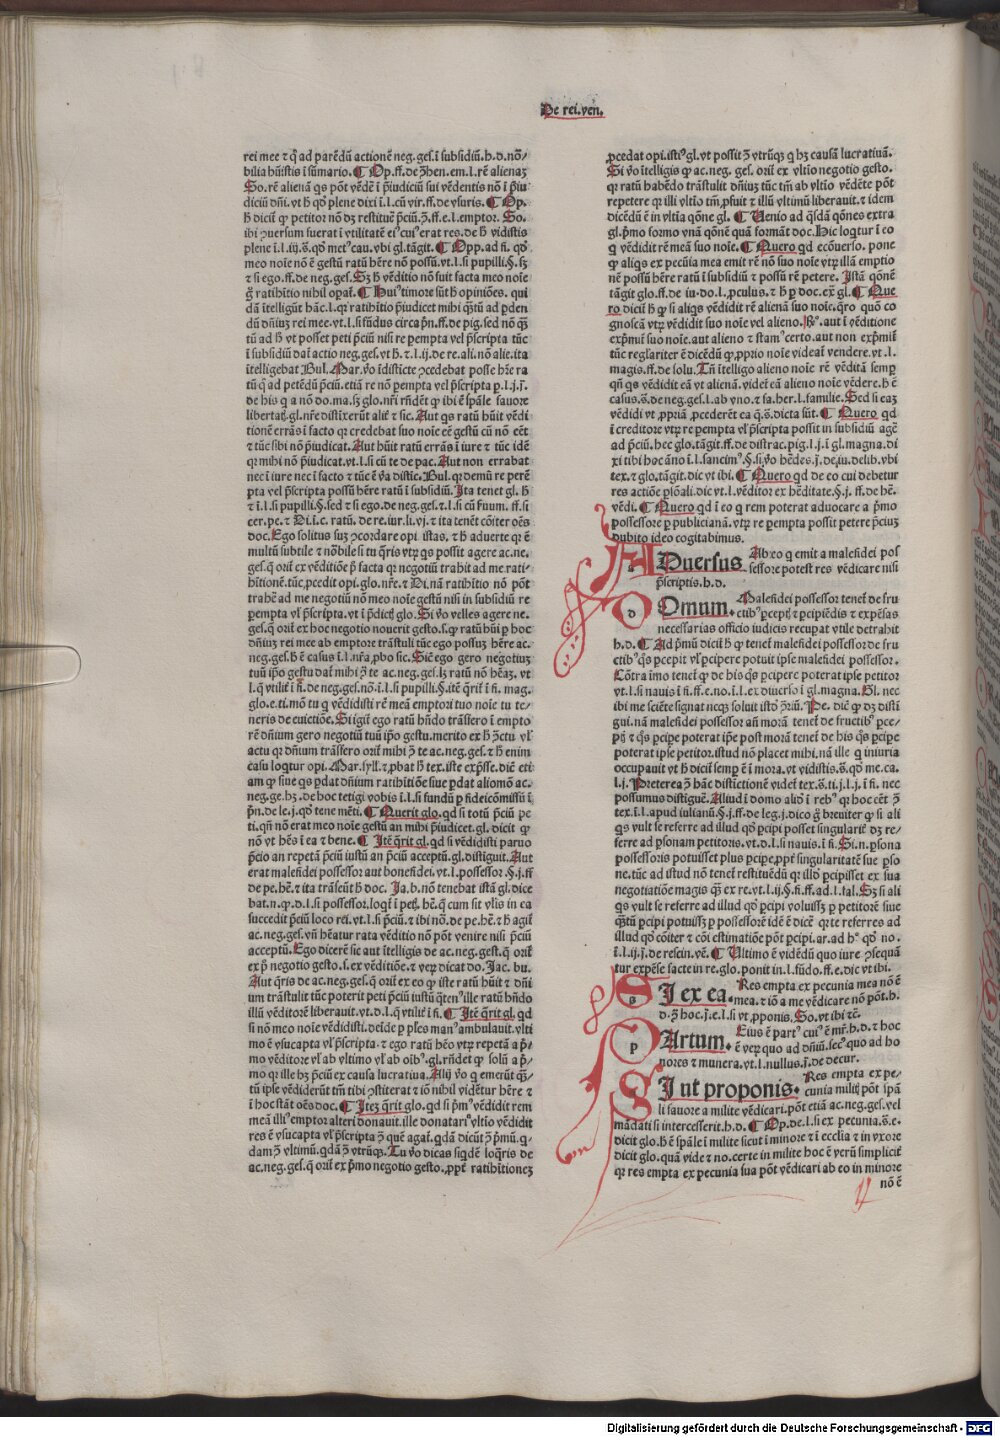 De rei.ven.
rei mee ⁊ q̄ ad parēdū actionē neg.ges.ī subsidiū.h.d.nō/
bilia hūistis ī sūmario.¶ Op.ff.de ꝯhen.em.l.rē alienaꝫ
So.rē alienā qs pōt vēdē ī p̄iudiciū sui vēdentis nō ī p̄iu
diciū dn̄i.vt h̄ qꝺ plene dixi ī.l.cū vir.ff.de vsuris.¶ Op.
h̄ dicit̄ qꝫ petitor nō dꝫ restituē p̄ciū.ꝯ.ff.e.l.emptor. So.
ibi ꝯuersum fuerat ī vtilitatē ei⁹ cui⁹ erat res.de h̄ vidistis
plene ī.l.iij.s̄.qꝺ met⁹ cau.vbi gl.tāgit.¶ Opp.ad fi. qꝺ
meo noīe nō ē gestū ratū hēre nō possū.vt.l.si pupilli.§.sꝫ
⁊ si ego.ff.de neg.ges. Sꝫ h̄ vēditio nō fuit facta meo noīe
g̊ ratihītio nihil opat̄.¶ Hui⁹timore sūt h̄ opiniōes. qui
dā ītelligūt hāc.l.qꝫ ratihītio p̄iudicet mihi q̄tū ad ꝑden
dū dn̄iuꝫ rei mee.vt.l.si fūdus circa p̄n.ff.de pig.sed nō q̄
tū ad h̄ vt posset peti p̄ciū nisi re ꝑempta vel p̄scripta tūc
ī subsidiū dat̄ actio neg.ges.vt h̄.⁊.l.ij.de re.ali.nō alie.ita
ītelligebat Bul. Mar.vo īdisticte ꝯcedebat posse hr̄e ra
tū q̄ ad petēdū p̄ciū.etiā re nō ꝑempta vel p̄scripta ꝑ.l.j.ī.
de his q a nō do.ma.sꝫ glo.nr̄i rn̄det̄ qꝫ ibi ē spāle fauore
libertat̄.gl.nr̄e distīxerūt alit̄ ⁊ sic. Aut qs ratū hūit vēdi
tionē errās ī facto qꝫ credebat suo noīe eē gestū cū nō eēt
⁊ tūc sibi nō p̄iudicat. Aut hūit ratū errās ī iure ⁊ tūc idē
qꝫ mihi nō p̄iudicat.vt.l.si cū te de pac. Aut non errabat
nec ī iure nec ī facto ⁊ tūc ē v̄a distic. Bul.qꝫ demū re ꝑem
pta vel p̄scripta possū hēre ratū ī subsidiū. Ita tenet gl. h̄
⁊ ī.l.si pupilli.§.sed ⁊ si ego.de neg.ges.⁊.l.si cū ẜuum.ff.si
cer.pe.⁊ Di.ī.c. ratū.de re.iur.li.vj.⁊ ita tenēt cōiter oēs
doc. Ego solitus suꝫ ꝯcordare opi istas. ⁊ h̄ aduerte qꝫ ē
multū subtile ⁊ nōbile si tu q̄ris vtꝝ qs possit agere ac.ne.
ges.q̄ orit̄ ex vēditiōe p̄ facta qꝫ negotiū trahit ad me rati-
hītionē.tūc ꝓcedit opi.glo.nr̄e.⁊ Di.nā ratihītio nō pōt
trahē ad me negotiū nō meo noīe gestū nisi in subsidiū re
ꝑempta vl̓ p̄scripta.vt ī p̄dict̄ glo. Si vo velles agere ne.
ges.q̄ orit̄ ex hoc negotio nouerit gesto.s.qꝫ ratū hūi ꝑ hoc
dn̄iuꝫ rei mee ab emptore trāstuli tūc ego possuꝫ hēre ac.
neg.ges.h̄ ē casus ī.l.nr̄a.ꝓbo sic. Sic̄ ego gero negotiuꝫ
tuū ip̄o gestu dat̄ mihi ꝯ te ac.neg.ges.lꝫ ratū nō hēaꝫ. vt
l.q̄ vtilit̄ ī fi.de neg.ges.nō.ī.l.si pupilli.§.itē q̄rit̄ ī fi. mag.
glo.e.ti.mō tu q vēdidisti rē meā emptori tuo noīe tu te-
neris de euictiōe. Si igit̄ ego ratū hn̄do trāsfero ī empto
rē dn̄ium gero negotiū tuū ip̄o gestu.merito ex h̄ ꝯctu vl̓
actu qꝫ dn̄ium trāsfero orit̄ mihi ꝯ te ac.neg.ges.⁊ h̄ enim
casu loqtur opi. Mar.syll.⁊ ꝓbat̄ h̄ tex.iste exp̄sse.dic̄ eti
am qꝫ siue qs ꝑdat dn̄ium ratihītiōe siue ꝑdat aliomō ac.
neg.ge.hꝫ.de hoc tetigi vobis ī.l.si fundū ꝑ fideicōmissū ī
p̄n.de le.j.qꝺ tene mēti.¶ Querit glo.qd si totū p̄ciū pe
ti.qn̄ nō erat meo noīe gestū an mibi p̄iudicet.gl. dicit qꝫ
nō vt hēs ī ea ⁊ bene.¶ Itē q̄rit gl.qd si vēdidisti paruo
p̄cio an repetā p̄ciū iustū an p̄ciū acceptū.gl.distīguit. Aut
erat malefidei possessor aut bonefidei.vt.l.possessor.§.j.ff
de pe.hē.⁊ ita trāseūt h̄ doc. Ja.b.nō tenebat istā gl.dice
bat.n.qꝫ.d.l.si possessor.loqt̄ ī pet̄.hē.q̄ cum sit vl̓is in ca
succedit p̄ciū loco rei.vt.l.si p̄ciū.⁊ ibi nō.de pe.hē.⁊ h̄ agit̄
ac.neg.ges.vn̄ hēatur rata vēditio nō pōt venire nisi p̄ciū
acceptū. Ego dicerē sic aut ītelligis de ac.neg.gest.q̄ orit̄
ex p̄ negotio gesto.s.ex vēditiōe.⁊ veꝝ dicat do. Jac. bu.
Aut q̄ris de ac.neg.ges.q̄ orit̄ ex eo qꝫ iste ratū huit ⁊ dn̄i
um trāstulit tūc poterit peti p̄ciū iustū q̄ten⁹ille ratū hn̄do
illū vēditorē liberauit.vt.d.l.q̄ vtilit̄ ī fi.¶ Itē q̄rit gl.qd
si nō meo noīe vēdidisti.deīde ꝑ ples man⁹ ambulauit.vlti
mo ē vsucapta vl̓ p̄scripta.⁊ ego ratū hēo vtꝝ repetā a p̄/
mo vēditore vl̓ ab vltimo vl̓ ab oīb⁹.gl.rn̄det qꝫ solū a p̄/
mo qꝫ ille hꝫ p̄ciū ex causa lucratiua. Alij vo q emerūt q̄/
tū ipse vēdiderūt tm̄ tibi ꝯstiterat ⁊ iō nihil vidētur hēre ⁊
ī hoc stāt oēs doc.¶ Itez q̄rit glo.qd si p̄m⁹vēdidit rem
meā illi⁹emptor alteri donauit.ille donatari⁹vltio vēdidit
res ē vsucapta vl̓ p̄scripta ꝯ quē agat̄.qdā dicūt ꝯ p̄mū.q/
dam ꝯ vltimū.qdā ꝯ vtrūqꝫ. Tu vo dicas siqdē loq̄ris de
ac.neg.ges.q̄ orit̄ ex p̄mo negotio gesto.ꝓpt̄ ratihītionez
ꝓcedat opi.isti⁹gl.vt possit ꝯ vtrūqꝫ q hꝫ causā lucratiuā.
Si vo itelligis qꝫ ac.neg. ges. orit̄ ex vltio negotio gesto.
qꝫ ratū habēdo trāstulit dn̄iuꝫ tūc tm̄ ab vltio vēdēte pōt
repetere qꝫ illi vltio tm̄.ꝓfuit ⁊ illū vltimū liberauit.⁊ idem
dicēdū ē in vltia qōne gl.¶ Venio ad qsdā qōnes extra
gl.p̄mo formo vnā qōnē quā formāt doc. Hic loqtur ī eo
q vēdidit rē meā suo noīe.¶ Quero qd ecōuerso. pone
qꝫ aliqs ex pecūia mea emit rē nō suo noīe vtꝝ illā emptio
nē possū hēre ratū ī subsidiū ⁊ possū rē petere. Istā qōnē
tāgit glo.ff.de iu.do.l.ꝓculus.⁊ h̄ ꝑ doc.ex gl.¶ Que
ro dicit̄ h̄ qꝫ si aliqs vēdidit rē alienā suo noīe.q̄ro quō co
gnoscā vtꝝ vēdidit suo noīe vel alieno. Rº.aut ī ꝯēditione
exp̄mit̄ suo noīe.aut alieno ⁊ stam⁹certo.aut non exp̄mit̄
tūc regl̓ariter ē dicēdū qꝫ.ꝓprio noīe videat̄ vendere.vt.l.
magis.ff.de solu. Tn̄ ītelligo alieno noīe rē vēditā semꝑ
qn̄ qs vēdidit eā vt alienā.videt̄ eā alieno noīe vēdere.h̄ ē
casus.s̄.de neg.ges.l.ab vno.⁊ fa.her.l.familie. Sed si eaꝫ
vēdidi vt ꝓpriā.ꝓcederēt ea q̄.s̄.dicta sūt.¶ Quero qd
ī creditore vtꝝ re ꝑempta vel p̄scripta possit in subsidiū agē
ad p̄ciū.hec glo.tāgit.ff.de distrac.pig.l.j.ī gl.magna.di
xi tibi hoc āno ī.l.sancim⁹.§.si.vo hēdes.j̄.de.iu.delib.vbi
tex.⁊ glo.tāgit.dic vt ibi.¶ Quero qd de eo cui debetur
res actiōe ꝑsōali.dic vt.l.vēditor ex hēditate.§.j. ff.de hē.
vēdi.¶ Quero qd ī eo q rem poterat aduocare a p̄mo
possessore ꝑ publicianā.vtꝝ re ꝑempta possit petere p̄ciuꝫ
dubito ideo cogitabimus.
ADuersus. Ab eo q emit a malefidei pos
sessore potest res vēdicare nisi
p̄scriptis.h.d.
DOmum. Malefidei possessor tenet̄ de fru
ctib⁹ꝑcept̄ ⁊ ꝑcipiēdis ⁊ expēsas
necessarias officio iudicis recupat vtile detrahit
h.d.¶ Ad p̄mū dicit̄ h̄ qꝫ tenet̄ malefidei possessor de fru
ctib⁹qs ꝑcepit vl̓ ꝑcipere potuit ipse malefidei possessor.
Cōtra īmo tenet̄ qꝫ de his qs ꝑcipere poterat ipse petitor
vt.l.si nauis ī fi.ff.e.no.ī.l.ex diuerso ī gl.magna. Gl. nec
ibi me sciēte signat neqꝫ soluit istꝺ ꝯriū. Pe. dic̄ qꝫ dꝫ disti
gui.nā malefidei possessor an̄ morā tenet̄ de fructib⁹ ꝑce/
pt̄ ⁊ qs ꝑcipe poterat ipe post morā tenet̄ de his qs ꝑcipe
poterat ipse petitor.istud nō placet mihi.nā ille q iniuria
occupauit vt h̄ dicit̄ semꝑ ē ī mora.vt vidistis.s̄.qꝺ me.ca.
l.j. Preterea ꝯ hāc distictionē videt̄ tex.s̄.ti.j.l.j.ī fi. nec
possumus distiguē. Aliud ī domo alio ī reb⁹ qꝫ hoc eēt ꝯ
tex.ī.l.apud iulianū.§.j.ff.de leg.j.dico g̊ breuiter qꝫ si ali
qs vult se referre ad illud qꝺ ꝑcipi posset singularit̄ dꝫ re-
ferre ad ꝑsonam petitoris.vt.d.l.si nauis.ī fi. Si.n.ꝑsona
possessoris potuisset plus ꝑcipe.ꝓpt̄ singularitatē sue ꝑso
ne.tūc ad istud nō tenet̄ restituēdū qꝫ illꝺ ꝑcipisset ex sua
negotiatiōe magis q̄ ex re.vt.l.ij.§.fi.ff.ad.l.fal. Sꝫ si ali
qs vult se referre ad illud qꝺ ꝑcipi voluissꝫ ꝑ petitorē siue
q̄tū ꝑcipi potuissꝫ ꝑ possessorē idē ē dicē qꝫ te referres ad
illud qꝺ cōiter ⁊ cōi estimatiōe pōt ꝑcipi.ar.ad hº qꝺ no.
ī.l.ij.j̄.de rescin.vē.¶ Ultimo ē vidēdū quo iure.ꝯsequā
tur expēse facte in re.glo.ponit in.l.fūdo.ff.e.dic vt ibi.
SI ex ea. Res empta ex pecunia mea nō ē
mea.⁊ iō a me vēdicare nō pōt.h.
d.ꝯ hoc.j̄.e.l.si vt ꝓponis. So.vt ibi ⁊c̄.
PArtum. Eius ē part⁹ cui⁹ ē mr̄.h.d. ⁊ hoc
ē veꝝ quo ad dn̄iū. sec⁹ quo ad ho
nores ⁊ munera.vt.l.nullus.j̄.de decur.
SI ut proponis. Res empta ex pe-
cunia milit̄ pōt spā
li fauore a milite vēdicari.pōt etiā ac.neg.ges.vel
mādati si intercesserit.h.d.¶ Op.de.l.si ex pecunia.s̄.e.
dicit glo.h̄ ē spāle ī milite sicut ī minore ⁊ ī ecclīa ⁊ in vxore
dicit glo.quā vide ⁊ no.certe in milite hoc ē veꝝ simplicit̄
qꝫ res empta ex pecunia sua pōt vēdicari ab eo in minore
nō ē
Digitalisierung gefördert durch die Deutsche Forschungsgemeinschaft - DFG